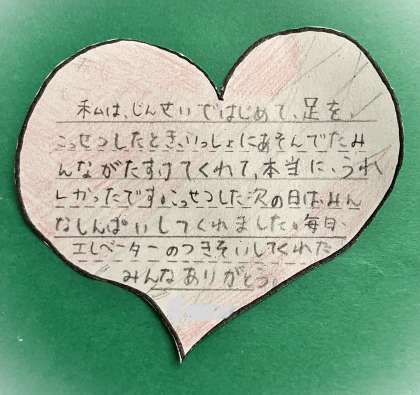 私は、じんせいではじめて、足を、
こっせつしたときいっしょにあそんでたみ
んながたすけてくれて、本当に、うれ
しかったです。こっせつした次の日はみん
なしんぱいしてくれました。毎日、
エレベーターのつきそいしてくれた
みんなありがとう。